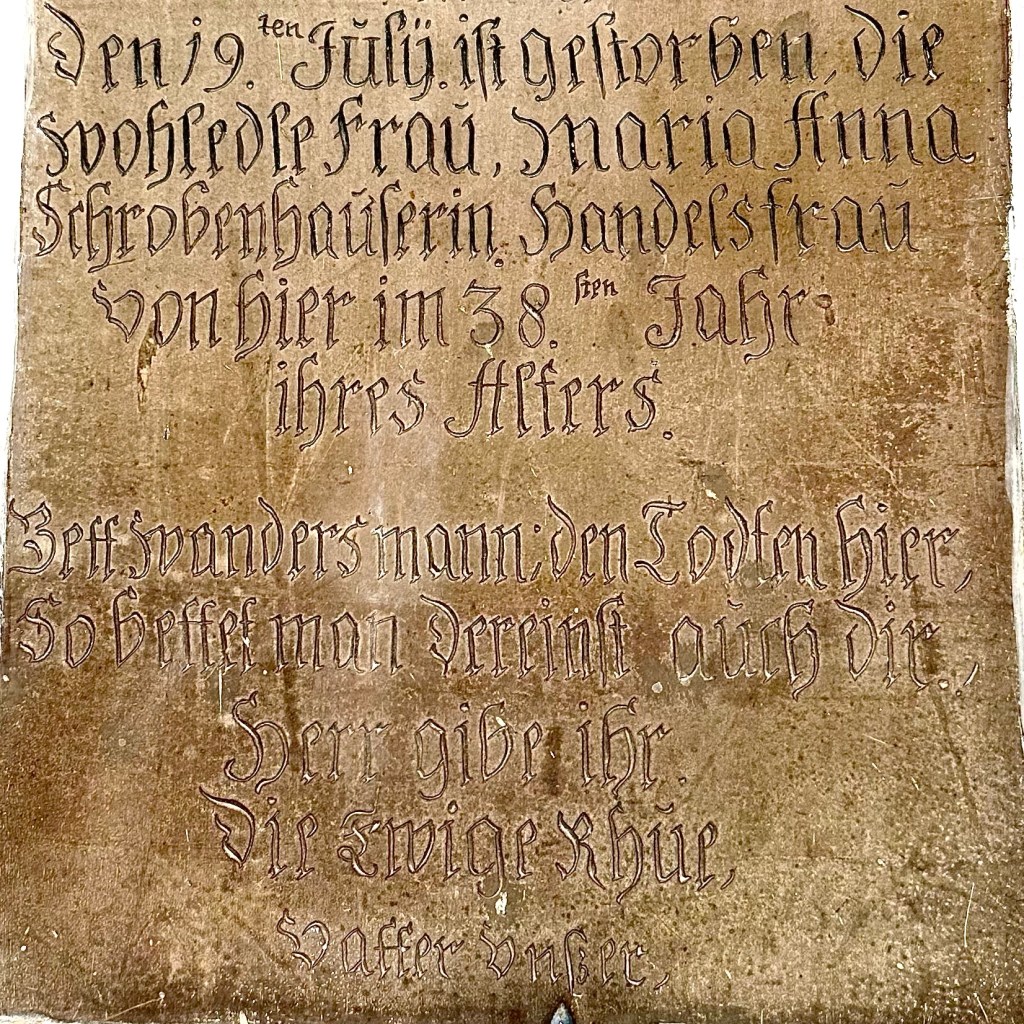 Den 19.ten Julÿ. ist gestorben, die
wohledle Fraŭ, Maria Anna
Schrobenhaŭserin, Handelsfraŭ
von hier im 38.sten Jahr
ihres Alters.
Bett wandersmann, den Todten hier,
So bettet man dereinst aŭch dir,
Herr gibe ihr.
Die Ewige Rhŭe,
Vatter vnßer,